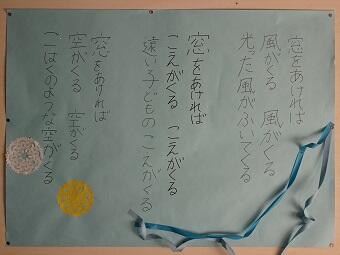 窓をあければ
風がくる　風がくる
光った風がふいてくる
窓をあければ
こえがくる　こえがくる
遠い子どものこえがくる
窓をあければ
空がくる　空がくる
こはくのような空がくる